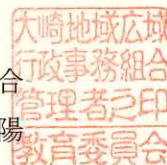 合
陽
大崎地域広域
行政事務組合
管理者之印
教育委員会